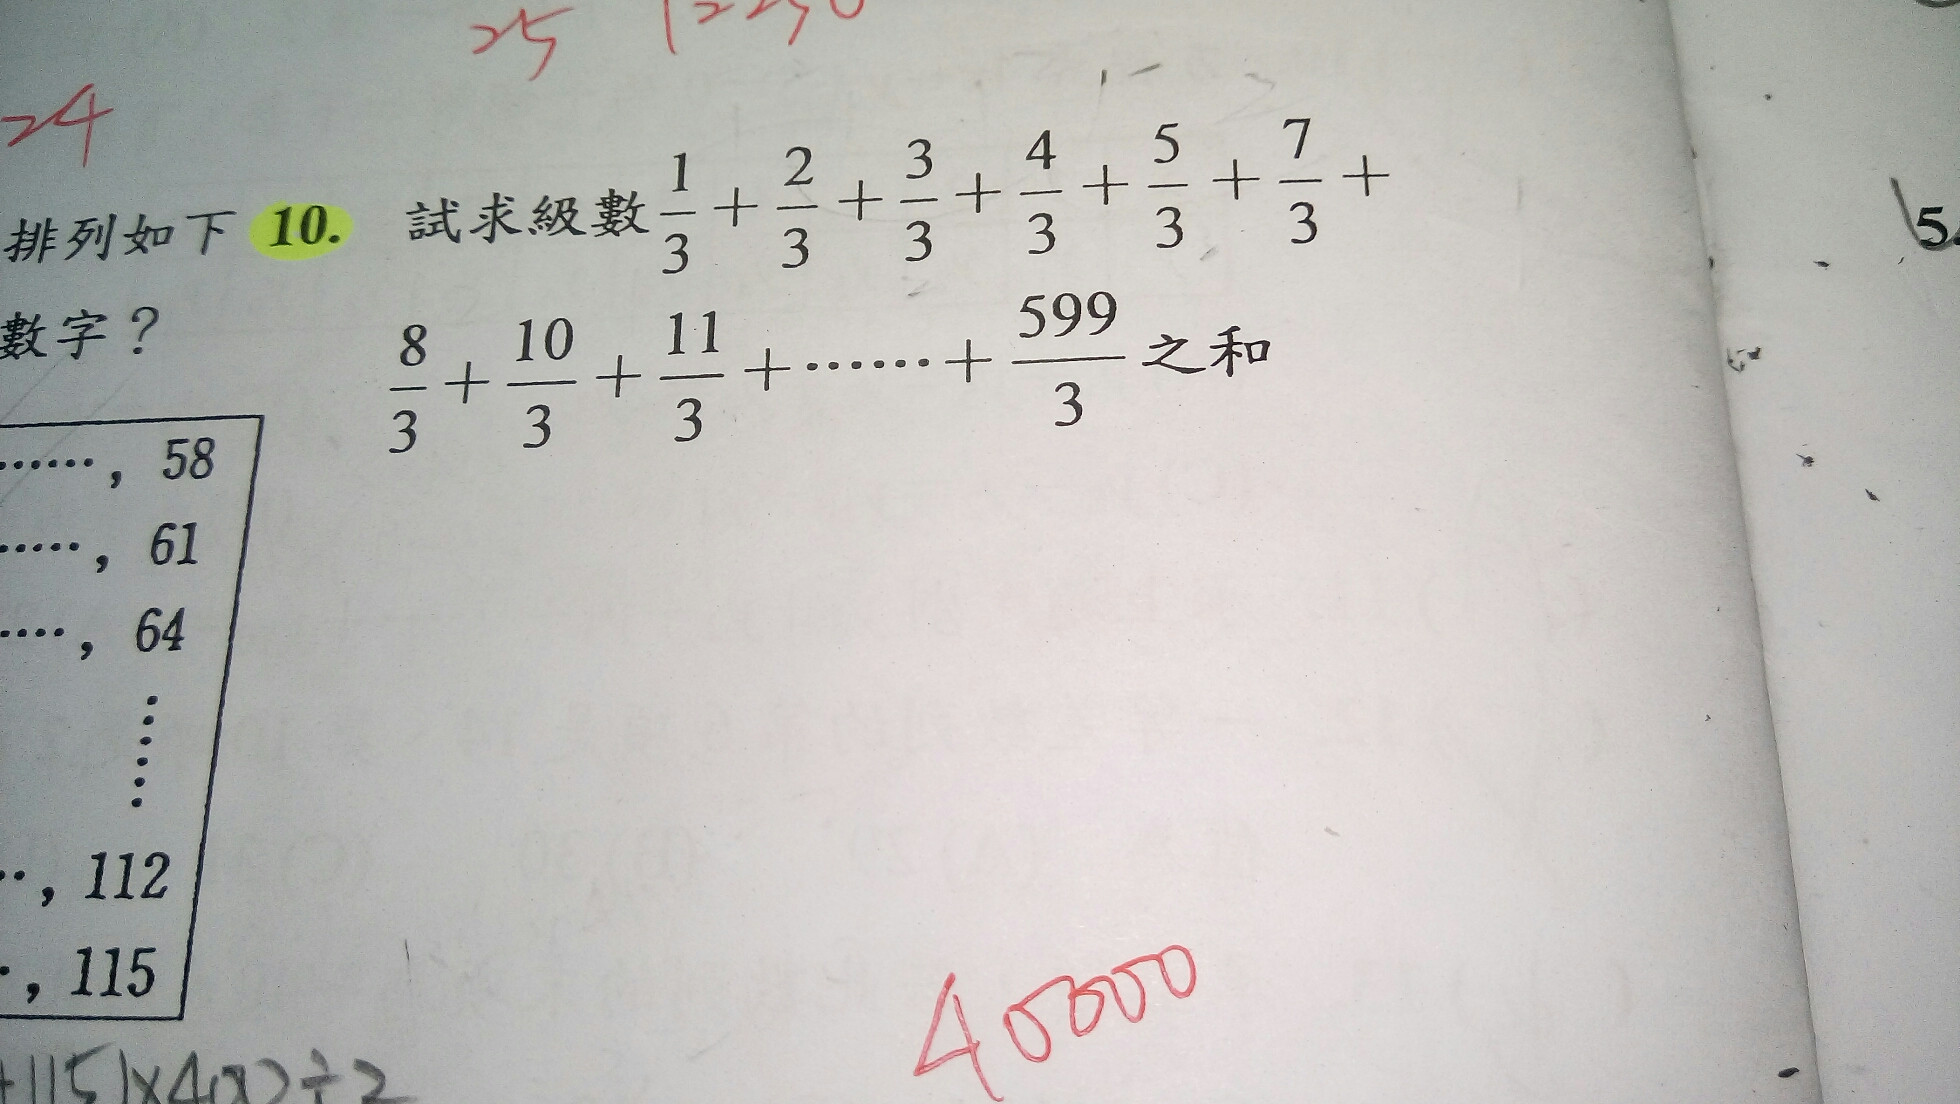 25 12250
24
排列如下
數字？
……, 58
……, 61
……, 64
⋮
……, 112
……, 115
+115)×400÷2
10. 試求級數 1/3 + 2/3 + 3/3 + 4/3 + 5/3 + 7/3 +
8/3 + 10/3 + 11/3 + …… + 599/3 之和
40000
5.